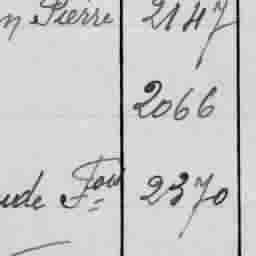 n Pierre 2147
2066
ude Fois 2370